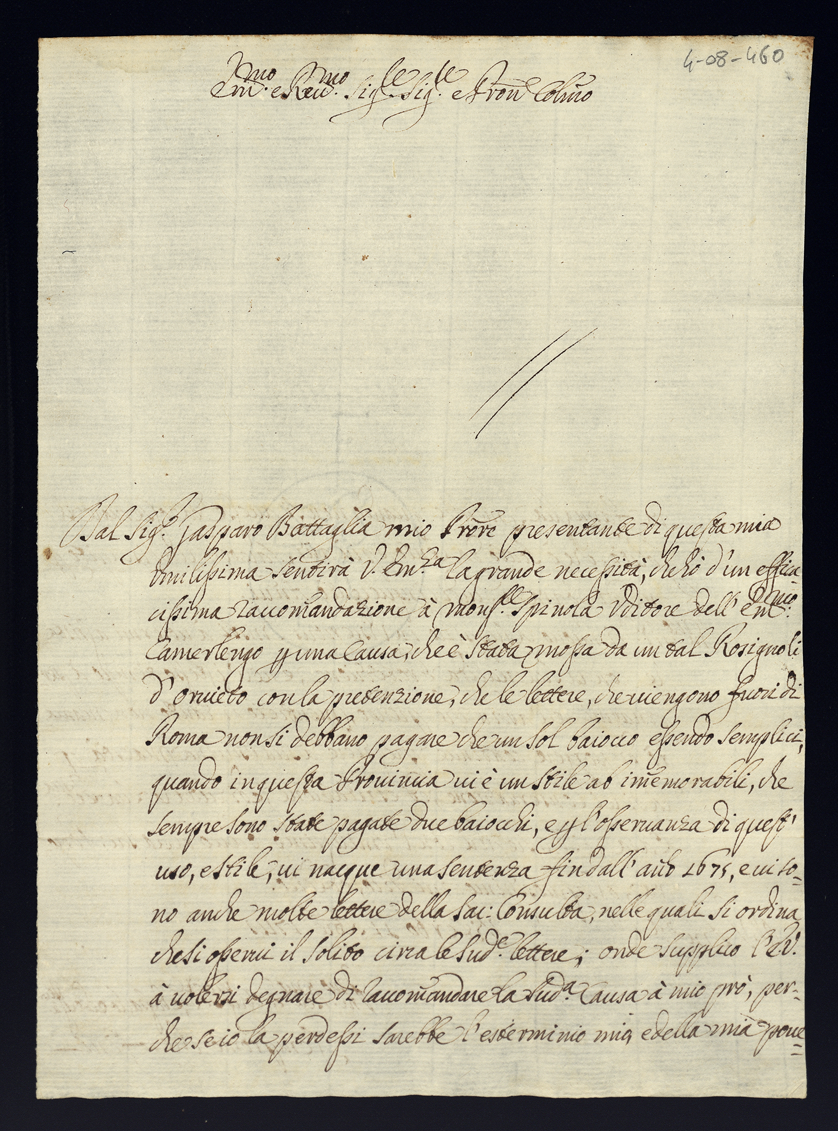 4-08-460
Em.mo e Reu.mo Sig.re Sig.re e Pron Colmo
Dal Sig.r Gasparo Battaglia mio Prore presentante di questa mia
umilissima sentirà V. Em.za la grande necessità, che hò d'un effica-
cissima raccomandazione à Mons.re Spinola Uditore dell' Em.mo
Camerlengo p una Causa, che è stata mossa da un tal Rosignoli
d'Orvieto con la pretenzione, che le lettere, che uengono fuori di
Roma non si debbano pagare che un sol baiocco essendo semplici,
quando in questa Provincia ui è un stile ab immemorabili, che
sempre sono state pagate due baiocchi, e p l'osseruanza di quest'
uso, e stile, ui nacque una sentenza fin dall' año 1675, e ui so=
no anche molte lettere della Sac: Consulta, nelle quali si ordina
che si osserui il solito circa le sud.e lettere; onde supplico l'E.V.
à uolersi degnare di raccomandare la sud.a Causa à mio prò, per=
che se io la perdessi sarebbe l'esterminio mio, e della mia poue=